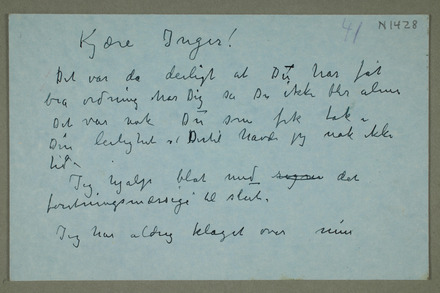 Kjære Inger!
41
N1428
Det var da deiligt at Du har fåt
bra ordning hos Dig så Du ikke blir alene
Det var nok Du som fik tak i
Din leilighet. Dertil havde jeg nok ikke
tid.
Jeg hjalp blot med det
forretningsmæssige til slut.
Jeg har aldrig klaget over min